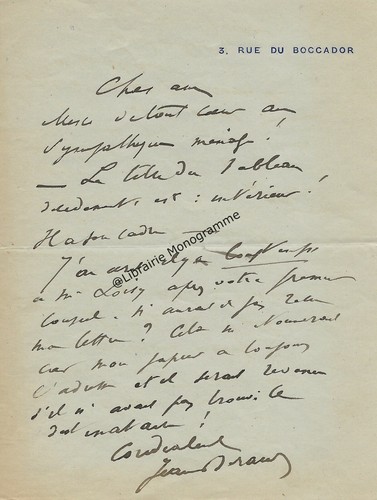 3, RUE DU BOCCADOR
Cher ami
Merci de tout cœur au
sympathique ménage !
— Le titre du Tableau
est : intérieur !
Il a son cadre
J'en ai
à Mr après votre premier
Conseil. n'aurait il pas reçu
ma lettre ? Cela m'étonnerait
car mon papier a toujours
l'adresse et il serait revenu
s'il n'avait pas trouvé le
destinataire !
Cordialement
Jean Béraud
@Librairie Monogramme